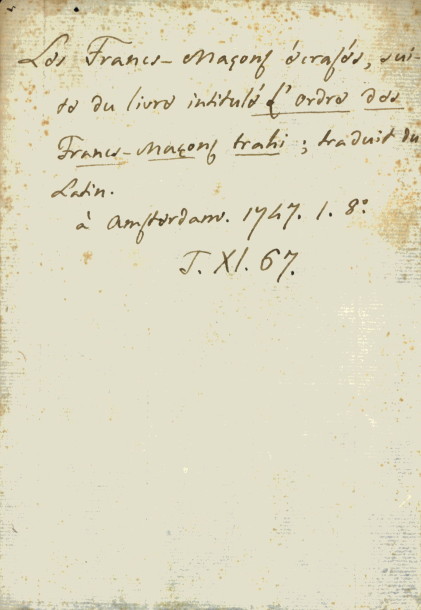 Les Francs-Maçons écrasés, sui-
te du livre intitulé L'ordre des
Francs-Maçons trahi ; traduit du
Latin.
à Amsterdam. 1747. 1. 8°
T. XI. 67.